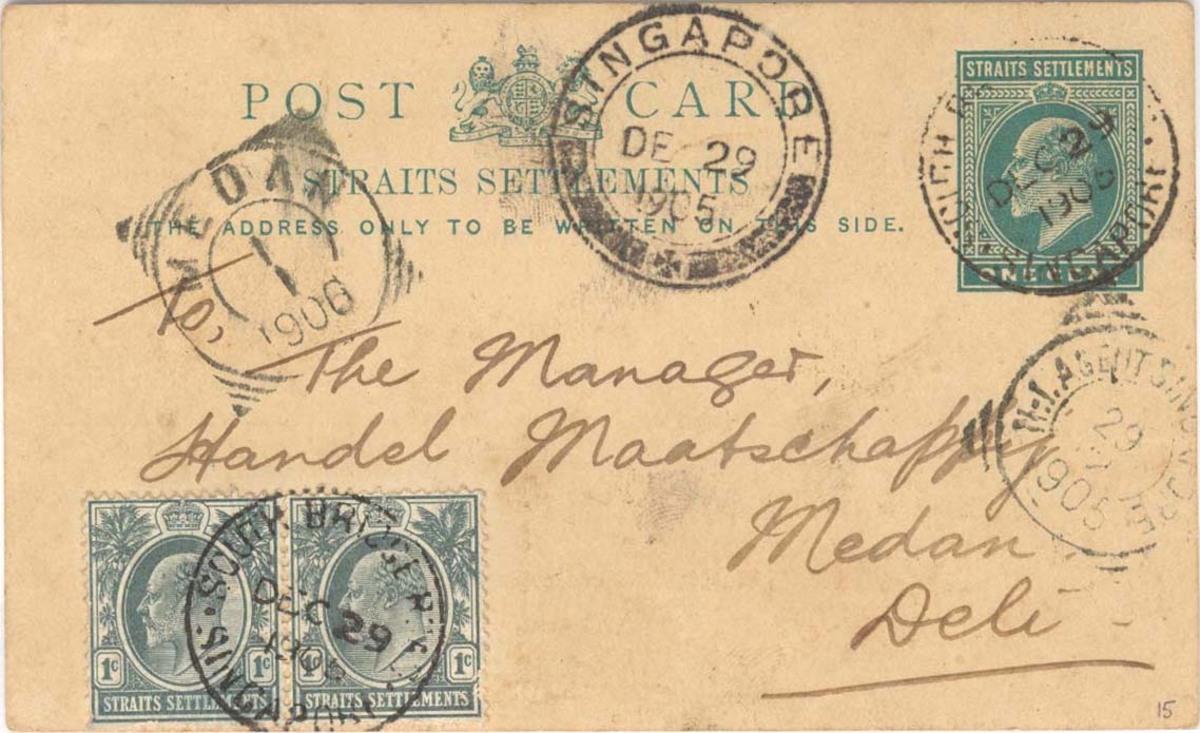 POST CARD
STRAITS SETTLEMENTS
THE ADDRESS ONLY TO BE WRITTEN ON THIS SIDE.
STRAITS SETTLEMENTS
ONE CENT
SINGAPORE
DEC 29
1905
DEC 29
1905
SINGAPORE
MEDAN
1 1
1906
To,
The Manager,
Handel Maatschappy
Medan
Deli
N-I. AGENT SINGAPORE
29
1905
SOUTH BRIDGE R
DEC 29
1905
SINGAPORE
1c 1c
STRAITS SETTLEMENTS
1c 1c
STRAITS SETTLEMENTS
15